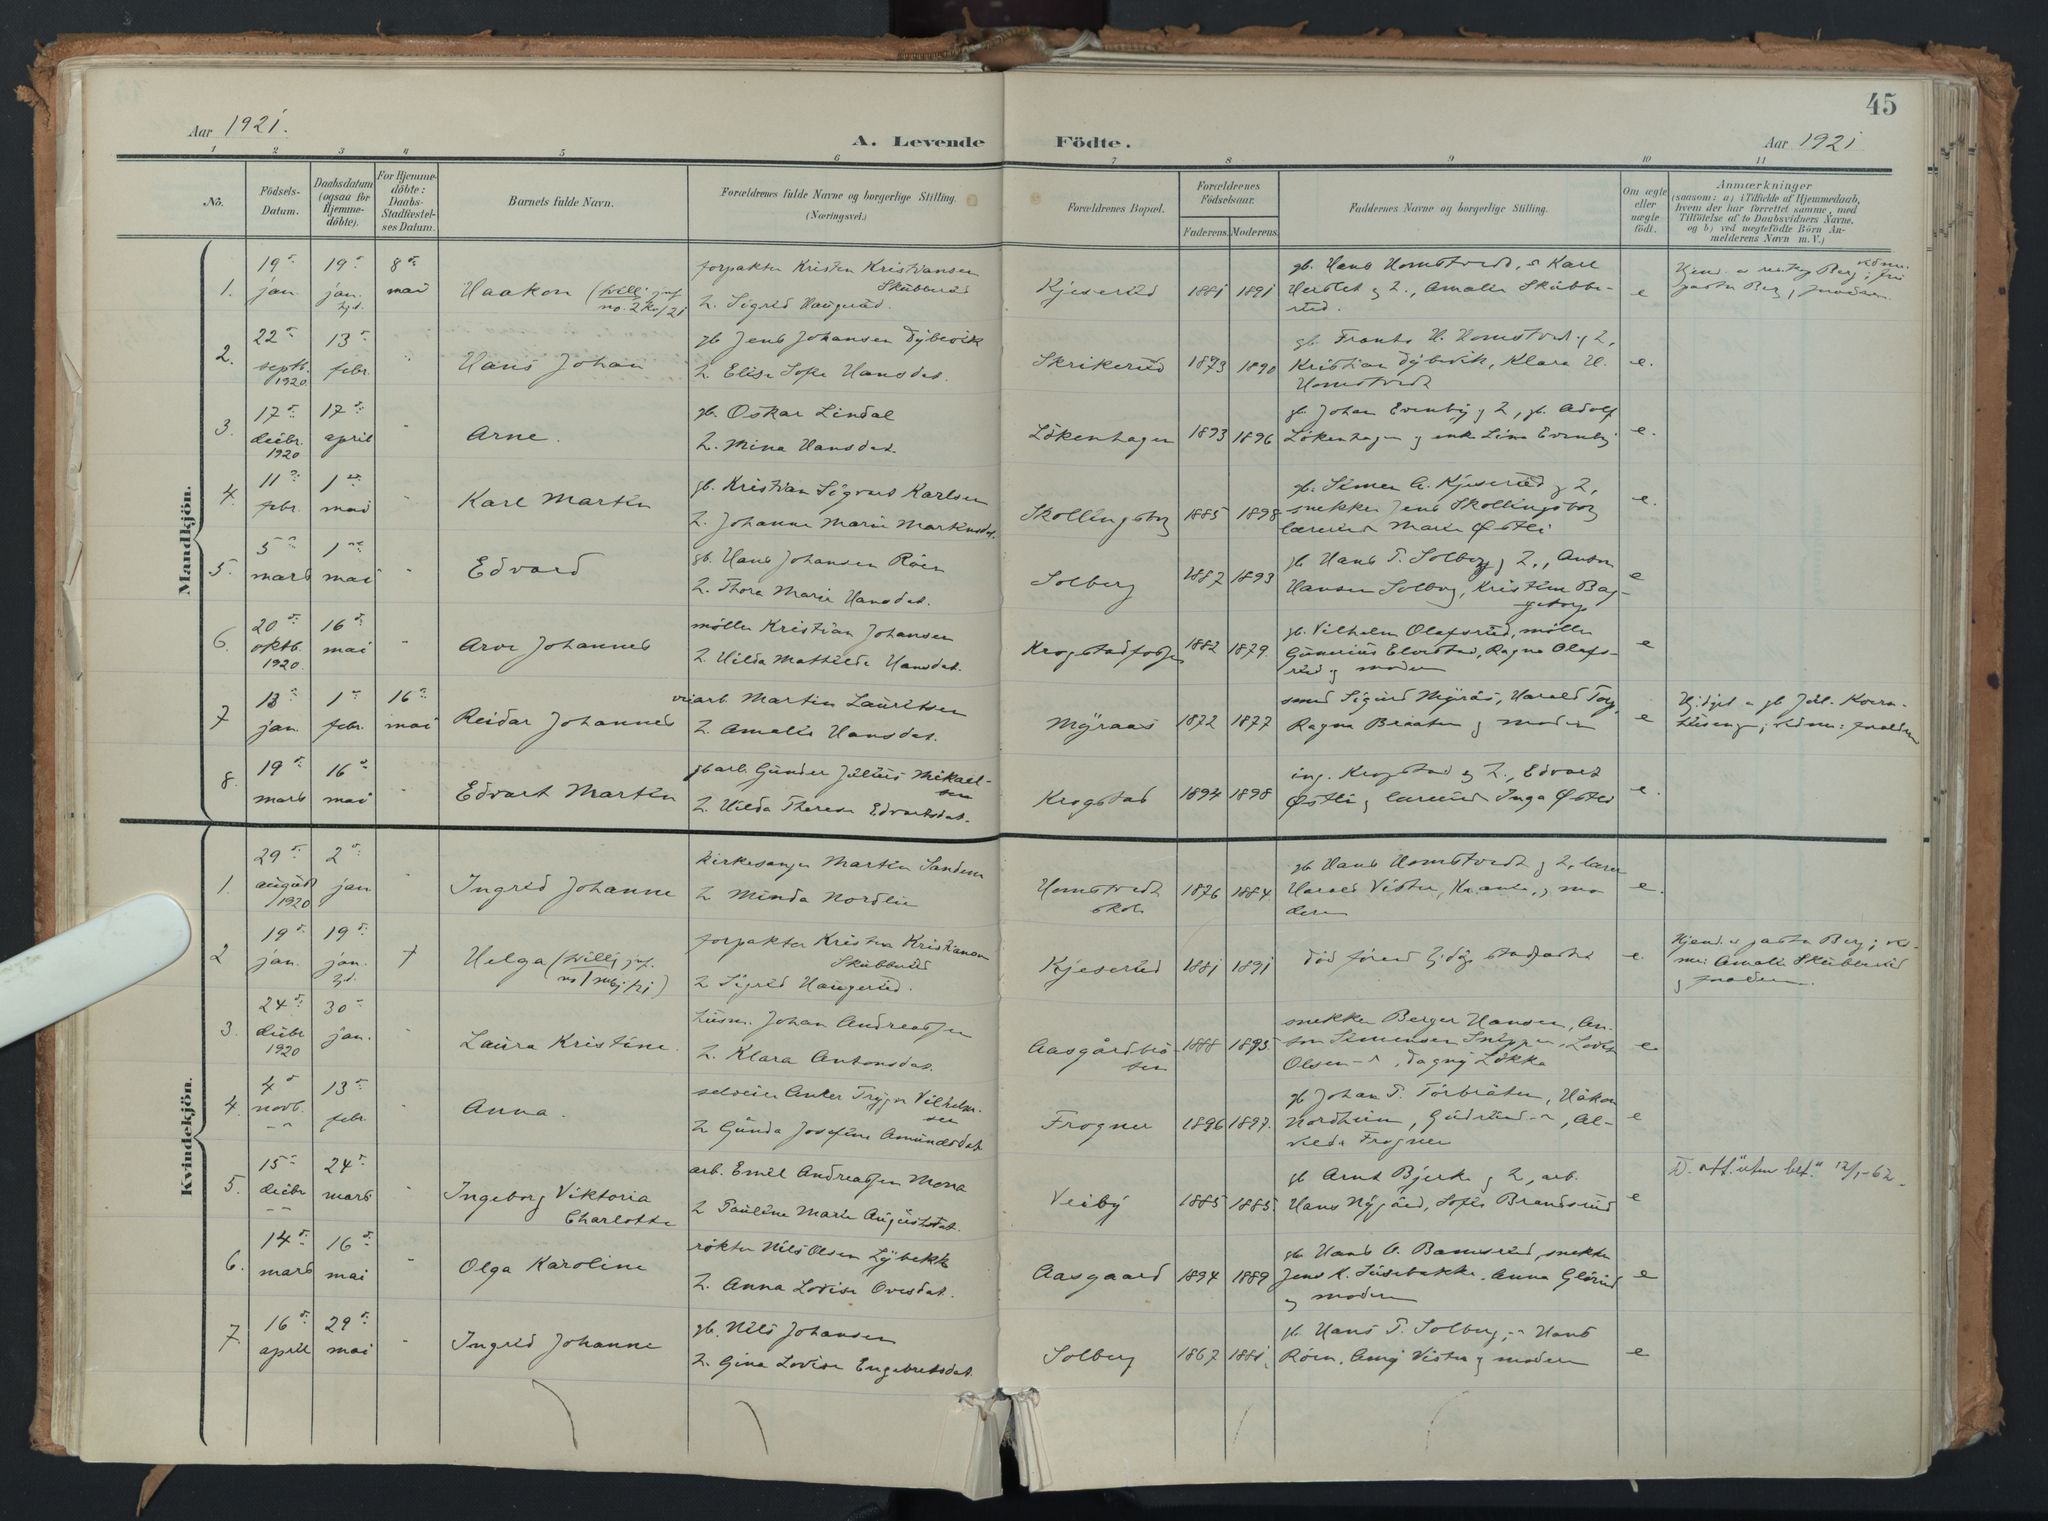 45
Aar 1921.
A. Levende Födte.
Aar 1921
1 2 3 4 5 6 7 8 9 10 11
No.
Födsels-Datum.
Daabsdatum (ogsaa for Hjemme-döbte).
For Hjemme-döbte: Daabs-Stadfæstel-ses Datum.
Barnets fulde Navn.
Forældrenes fulde Navne og borgerlige Stilling.
(Næringsvei.)
Forældrenes Bopæl.
Forældrenes Födselsaar.
Faderens. Moderens.
Faddernes Navne og borgerlige Stilling.
Om ægte eller uægte födt.
Anmærkninger
(saasom: a) i Tilfælde af Hjemmedaab,
hvem der har forrettet samme, med
Tilföielse af to Daabsvidners Navne,
og b) ved uægtefödte Börn An-
melderens Navn m. V.)
Mandkjön.
1. 19 jan. 19 jan. hjd. 8 mai
Haakon (tvilling jnf no. 2 kv/21
forpakter Kristen Kristiansen
Skubberud
h. Sigrid Haugerud.
Kjeserud 1881 1891
gb. Hans Homstvedt, s Karl
h., Amalie Skubbe-
rud.
e
2. 22 septb. 1920 13 febr.
Hans Johan
gb Jens Johansen Dybevik
h. Elise Sofie Hansdat.
Skrikerud 1873 1890
gb. Frants H. Homstvedt og h,
Kristian Dybevik, Klara H.
Homstvedt
e.
3. 17 decbr. 1920 17 april
Arne.
gb. Oskar Lindal
h. Mina Hansdat.
Lökenhagen 1893 1896
gb. Johan Evenby og h, gb. Adolf
Lökenhagen og enke Lina Evenby
e.
4. 11 febr. 1 mai
Karl Martin
gb. Kristian Sigvart Karlsen
h. Johanne Marie Martinsdat.
Skollingsborg 1885 1898
gb. Simen A. Kjeserud og h,
snekker Jens Skollingsborg
lærerind Marie Østli
e.
5. 5 mars 1 mai
Edvard
gb. Hans Johansen Röen
h. Thora Marie Hansdat.
Solberg 1887 1893
gb Hans T. Solberg og h., Anton
Hansen Solberg, Kristine Bag-
e
6. 20 oktb. 1920 16 mai
Arve Johannes
möller Kristian Johansen
h Hilda Mathilde Hansdat.
Krogstadfossen 1882 1879.
gb. Vilhelm Olafsrud, möller
Gunerius Elvestad, Ragna Olafs-
rud og moderen
e
7 13 jan. 1 febr. 16 mai
Reidar Johannes
arb. Martin Lauritsen
h. Amalie Hansdat.
Myraas 1872 1877
smed Sigurd Myrås, Harald Torp,
Ragna Braaten og moderen
e
8. 19 mars 16 mai
Edvart Martin
gbarb. Gunder Julius Mikael-
sen
h Hilda Therese Edvartsdat.
Krogstad 1894 1898
ing. Krogstad og h., Edvart
Østli og lærerind Inga Østli
e.
Kvindekjön.
1. 29 august 1920 2 jan
Ingrid Johanne
kirkesanger Martin Sandem
h Minda Nordlie
Homstvedt
skole
1876 1884.
gb Hans Homstvedt og h, lærer
Harald Vister, og mo
deren
e.
2 19 jan. 19 jan. hjd. †
Helga (tvilling jnf.
no 1 mkj/21)
forpakter Kristen Kristiansen
Skubberud
h Sigrid Haugerud.
Kjeserud 1881 1891
död förend hjdåp stadfæstet
e.
Hjemd. v pastor Berg;
Amalie Skubberud
3. 24 decbr 1920 30 jan.
Laura Kristine.
husm. Johan Andreassen
h. Klara Antonsdat.
Aasgårdbrå-
ten
1888 1895.
snekker Berger Hansen, An-
ton Simensen
Olsen, Dagny Lökka
e
4. 4 novb. 13 febr.
Anna.
selveier Anker Trygve Vilhelm-
sen
h Gunda Josefine Amundsdat
Frogner 1896 1897.
gb Johan T. Torbråten, Håkon
Nordheim, Al-
vilda Frogner
e
5. 15 decbr 24 mars
Ingeborg Viktoria
Charlotte
arb. Emil Andreassen Mona
h Pauline Marie Augustsdat.
Veiby 1885 1885.
gb Arnt Bjerke og h, arb.
Hans Nygård, Sofie Brandsrud
e
D. att. "uten bet." 12/1-62.
6. 14 mars 16 mai
Olga Karoline
rökter Nils Olsen Lybekk
h. Anna Lovise Ovesdat.
Aasgaard 1894 1889
gb Hans O. Bamsrud, snekker
Jens K. Lusebakke, Anna Glörud
og moderen
e
7. 16 april 29 mai
Ingrid Johanne
gb. Nils Johansen
h. Gina Lovise Engebretsdat.
Solberg 1867 1881.
gb. Hans T. Solberg, Hans
Röen, Vister og moderen
e